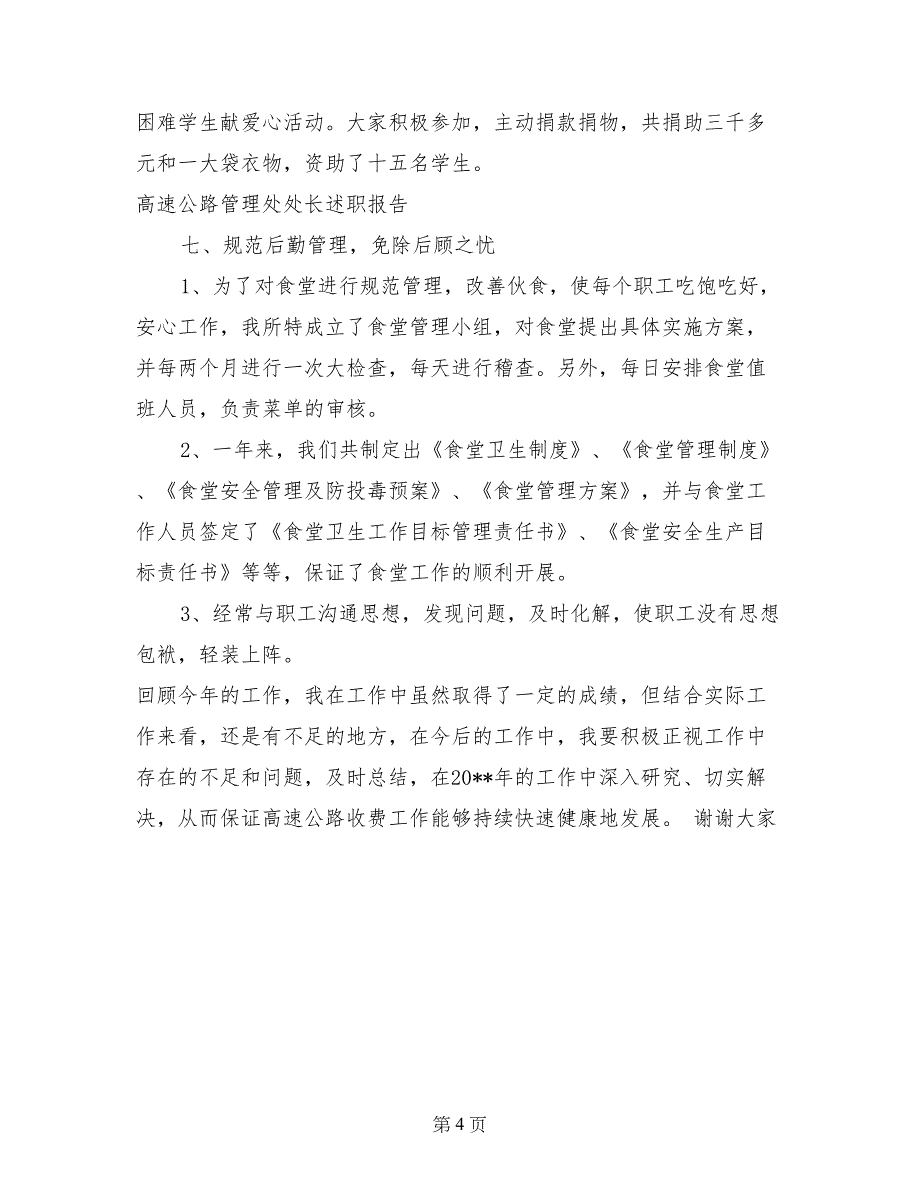 困难学生献爱心活动。大家积极参加，主动捐款捐物，共捐助三千多
元和一大袋衣物，资助了十五名学生。
高速公路管理处处长述职报告
七、规范后勤管理，免除后顾之忧
1、为了对食堂进行规范管理，改善伙食，使每个职工吃饱吃好，
安心工作，我所特成立了食堂管理小组，对食堂提出具体实施方案，
并每两个月进行一次大检查，每天进行稽查。另外，每日安排食堂值
班人员，负责菜单的审核。
2、一年来，我们共制定出《食堂卫生制度》、《食堂管理制度》
、《食堂安全管理及防投毒预案》、《食堂管理方案》，并与食堂工
作人员签定了《食堂卫生工作目标管理责任书》、《食堂安全生产目
标责任书》等等，保证了食堂工作的顺利开展。
3、经常与职工沟通思想，发现问题，及时化解，使职工没有思想
包袱，轻装上阵。
回顾今年的工作，我在工作中虽然取得了一定的成绩，但结合实际工
作来看，还是有不足的地方，在今后的工作中，我要积极正视工作中
存在的不足和问题，及时总结，在20**年的工作中深入研究、切实解
决，从而保证高速公路收费工作能够持续快速健康地发展。 谢谢大家
第 4 页